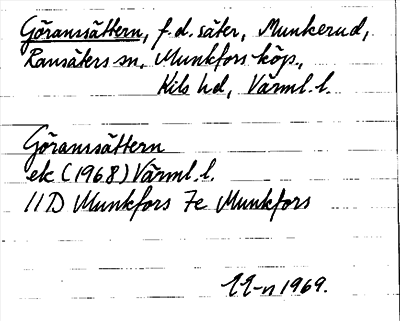 Göranssättern, f.d. säter, Munkerud,
Ransäters sn, Munkfors köp.,
Kils hd, Värml. l.
Göranssättern
ek (1968) Värml. l.
11D Munkfors 7e Munkfors
1969.